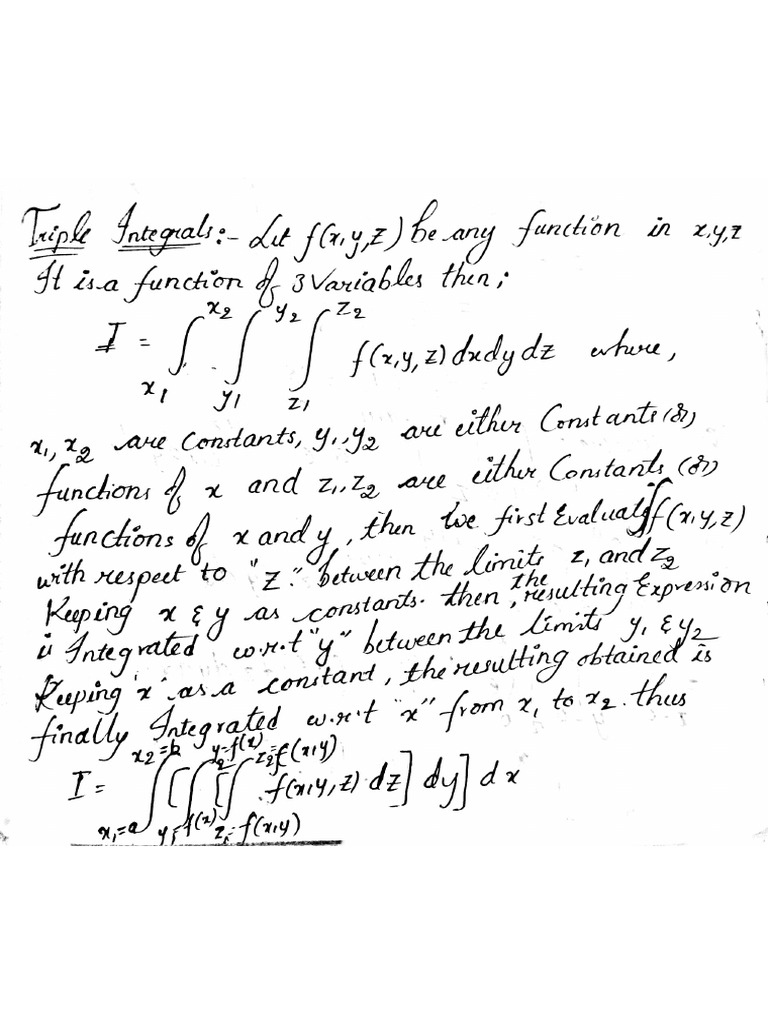 Triple Integrals:- Let f(x,y,z) be any function in x,y,z
It is a function of 3 Variables then;
I = ∫_{x1}^{x2} ∫_{y1}^{y2} ∫_{z1}^{z2} f(x,y,z) dxdydz where,
x1, x2 are constants, y1, y2 are either Constants (or)
functions of x and z1, z2 are either Constants (or)
functions of x and y, then we first Evaluate ∫f(x,y,z)
with respect to "z" between the limits z1 and z2
Keeping x & y as constants. then, the resulting Expression
is Integrated w.r.t "y" between the limits y1 & y2
Keeping 'x' as a constant, the resulting obtained is
finally Integrated w.r.t "x" from x1 to x2. thus
I = ∫_{x1=a}^{x2=b} [∫_{y1=f(x)}^{y2=f(x)} [∫_{z1=f(x,y)}^{z2=f(x,y)} f(x,y,z) dz] dy] dx